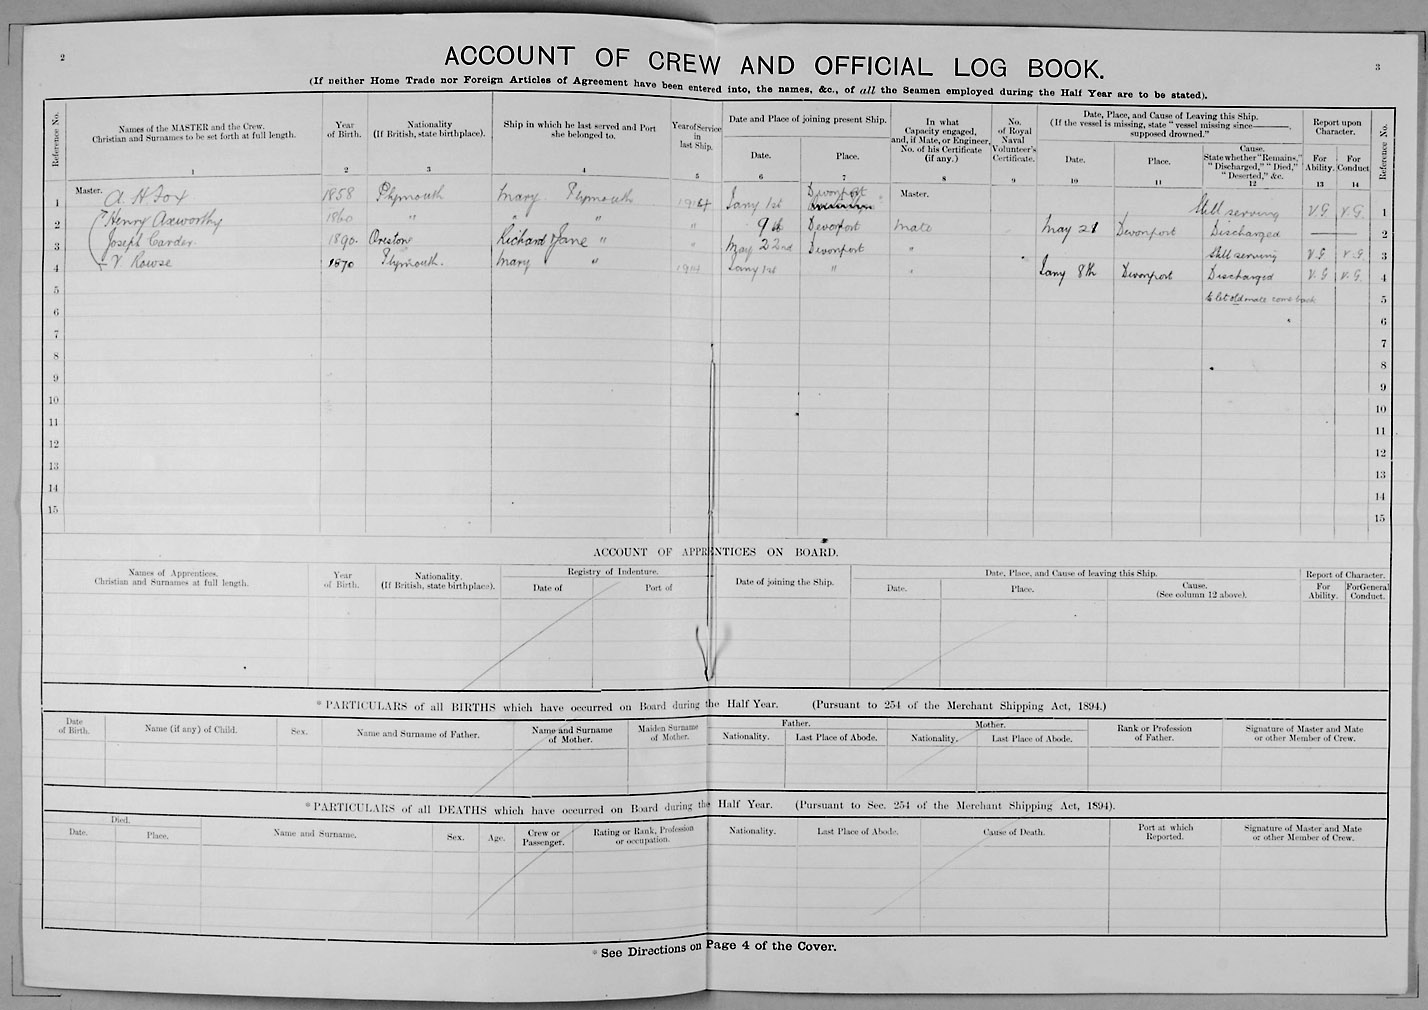 2
3
ACCOUNT OF CREW AND OFFICIAL LOG BOOK.
(If neither Home Trade nor Foreign Articles of Agreement have been entered into, the names, &c., of all the Seamen employed during the Half Year are to be stated).
Reference No. Names of the MASTER and the Crew. Christian and Surnames to be set forth at full length. Year of Birth. Nationality (If British, state birthplace). Ship in which he last served and Port she belonged to. Year of Service in last Ship. Date and Place of joining present Ship. In what Capacity engaged, and, if Mate, or Engineer, No. of his Certificate (if any.) No. of Royal Naval Volunteer's Certificate. Date, Place, and Cause of Leaving this Ship. (If the vessel is missing, state "vessel missing since———, supposed drowned." Report upon Character. Reference No.
Date. Place. Date. Place. Cause. State whether "Remains," "Discharged," "Died," "Deserted," &c. For Ability. For Conduct
1 2 3 4 5 6 7 8 9 10 11 12 13 14
1 Master. A. H Fox 1858 Plymouth Mary Plymouth 1914 Jany 1st Devonport Master. Still serving V.G V.G. 1
2 Henry Axworthy 1860 " " " " 9th Devonport Mate May 21 Devonport Discharged —— 2
3 Joseph Carder. 1890. Oreston Richard & Jane " " May 22nd Devonport " Still serving V.G V.G 3
4 V. Rowse 1870 Plymouth. Mary " 1914 Jany 1st " " Jany 8th Devonport Discharged V.G V.G. 4
5 to let old mate come back 5
6 6
7 7
8 8
9 9
10 10
11 11
12 12
13 13
14 14
15 15
ACCOUNT OF APPRENTICES ON BOARD.
Names of Apprentices. Christian and Surnames at full length. Year of Birth. Nationality. (If British, state birthplace). Registry of Indenture. Date of joining the Ship. Date, Place, and Cause of leaving this Ship. Report of Character.
Date of Port of Date. Place. Cause. (See column 12 above). For Ability. For General Conduct.
* PARTICULARS of all BIRTHS which have occurred on Board during the Half Year. (Pursuant to 254 of the Merchant Shipping Act, 1894.)
Date of Birth. Name (if any) of Child. Sex. Name and Surname of Father. Name and Surname of Mother. Maiden Surname of Mother. Father. Mother. Rank or Profession of Father. Signature of Master and Mate or other Member of Crew.
Nationality. Last Place of Abode. Nationality. Last Place of Abode.
* PARTICULARS of all DEATHS which have occurred on Board during the Half Year. (Pursuant to Sec. 254 of the Merchant Shipping Act, 1894).
Died. Name and Surname. Sex. Age. Crew or Passenger. Rating or Rank, Profession or occupation. Nationality. Last Place of Abode. Cause of Death. Port at which Reported. Signature of Master and Mate or other Member of Crew.
Date. Place.
* See Directions on Page 4 of the Cover.